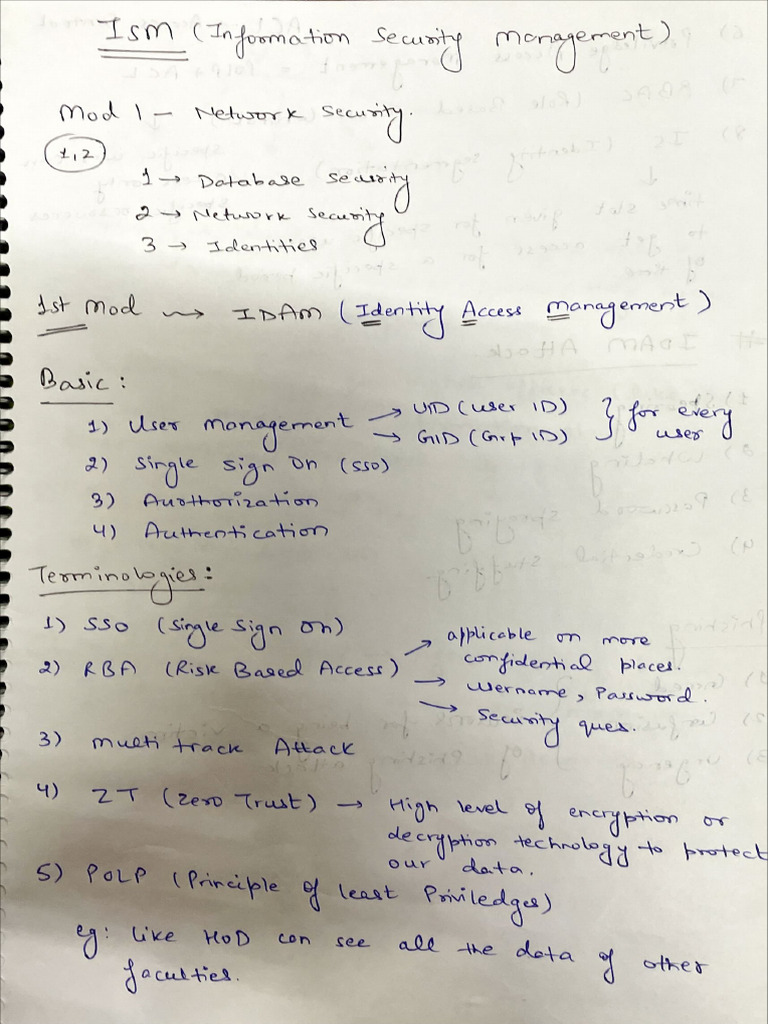 ISM (Information Security Management)
Mod 1 – Network Security.
1,2
1 → Database security
2 → Network security
3 → Identities
1st Mod ⟿ IDAM (Identity Access Management)
Basic :
1) User management → UID (User ID) } for every user
→ GID (Grp ID)
2) Single sign on (SSO)
3) Authorization
4) Authentication
Terminologies :
1) SSO (Single Sign On)
2) RBA (Risk Based Access) → applicable on more
confidential places.
→ Username, Password.
→ Security ques.
3) Multi track Attack
4) ZT (Zero Trust) → High level of encryption or
decryption technology to protect
our data.
5) POLP (Principle of least Priviledges)
eg: like HoD can see all the data of other
faculties.